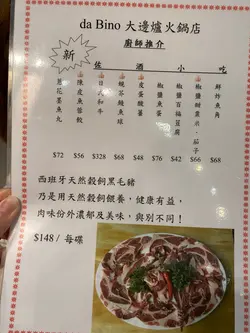 da Bino 大邊爐火鍋店
廚師推介
新
佐酒小吃
鮮炸魚角
椒鹽 茄子
椒鹽百福豆腐
椒鹽魚蛋
皮蛋
鯪魚球
日式和牛
陳皮魚蓉餃
蔥花墨魚丸
$72 $56 $328 $68 $48 $56 $42 $66 $68
西班牙天然穀飼黑毛豬
乃是用天然穀飼餵養，健康有益，
肉味份外濃郁及美味，與別不同！
$148 / 每碟